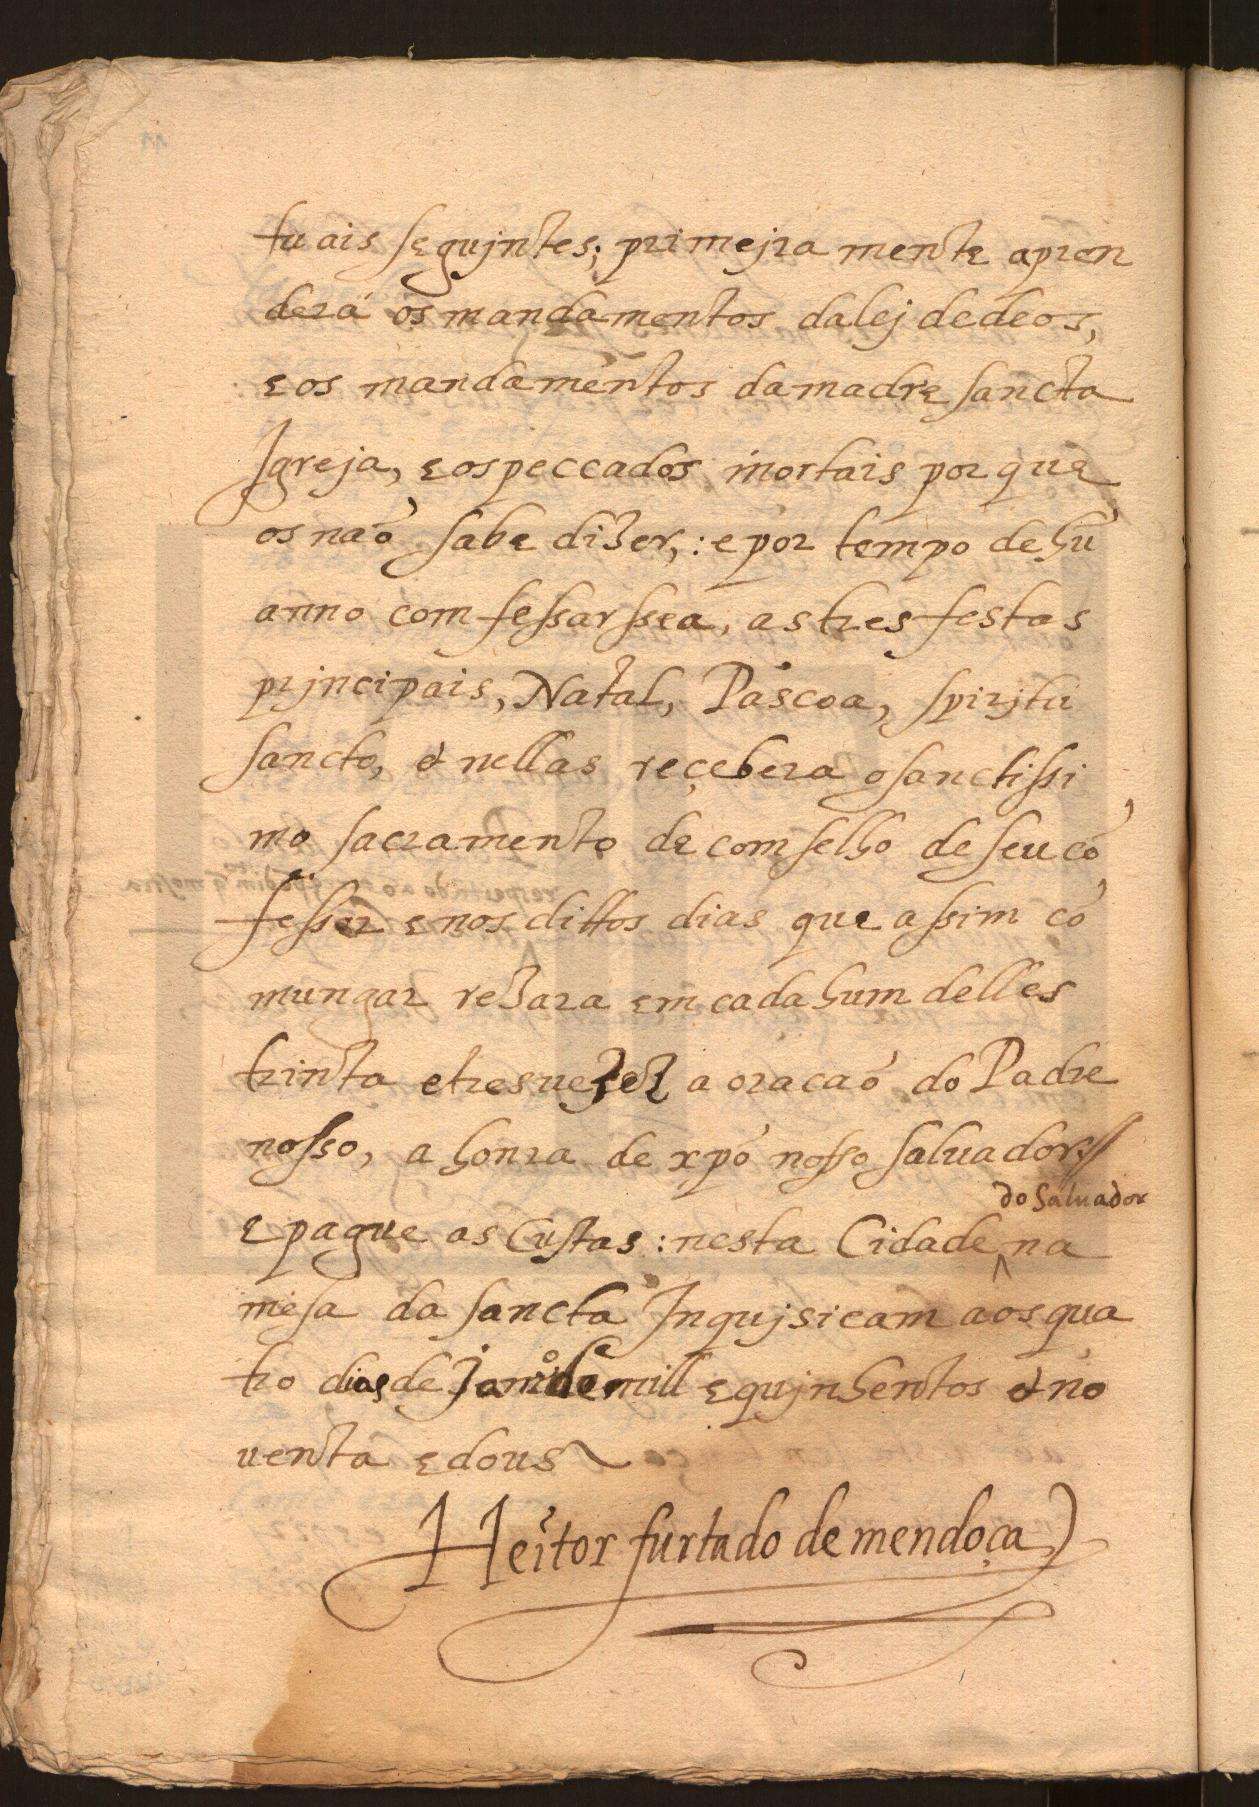 tuais seguintes; primejra mente apren
dera os mandamentos dalej dedeos,
e os mandamentos damadre sancta
Igreja, e os peccados mortais por que
os naõ sabe dizer,: e por tempo de hũ
anno comfessarssea, as tres festas
prjncipais, Natal, Pascoa, spirjtu
sancto, & nellas reçebera o sanctissi
mo sacramento de comselho de seu cõ
fessor e nos dittos dias que assim cõ
mungar rezara em cada hum delles
trinta e tres vezes a oracaõ do Padre
nosso, a honra de xpõ nosso saluador //
do Saluador
E pague as Custas: nesta Cidade ^ na
mesa da sancta Inqujsicam aos qua
tro dias de Janrº de mill e qujnhentos & no
uenta e dous
Heitor furtado de mendoça